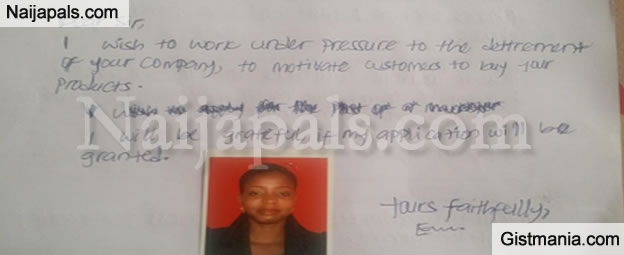 Naijapals.com
I wish to work under pressure to the dettrement
of your company, to motivate customers to buy your
products.
I
Naijapals.com
I will be grateful if my application will be
granted.
Yours faithfully,
Gistmania.com